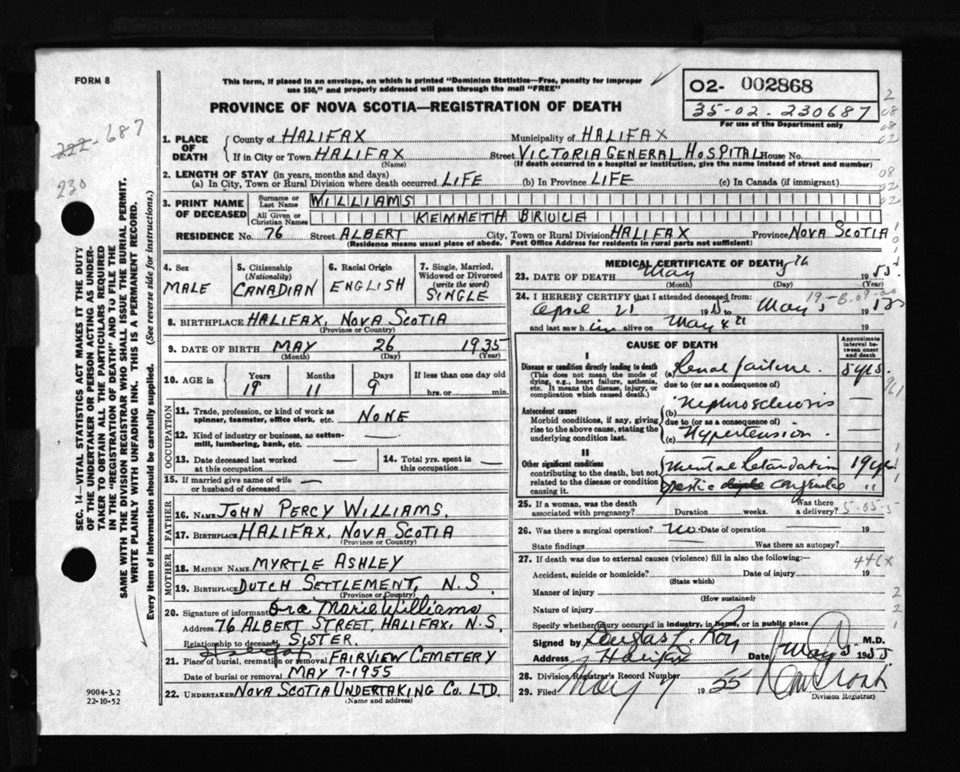 FORM 8
This form, if placed in an envelope, on which is printed "Dominion Statistics—Free, penalty for improper
use $50," and properly addressed will pass through the mail "FREE"
PROVINCE OF NOVA SCOTIA—REGISTRATION OF DEATH
02- 002868
35-02-230687
For use of the Department only
222-687
230
SEC. 14—VITAL STATISTICS ACT MAKES IT THE DUTY
OF THE UNDERTAKER OR PERSON ACTING AS UNDER-
TAKER TO OBTAIN ALL THE PARTICULARS REQUIRED
IN THE "REGISTRATION OF DEATH" AND TO FILE THE
SAME WITH THE DIVISION REGISTRAR WHO SHALL ISSUE THE BURIAL PERMIT.
WRITE PLAINLY WITH UNFADING INK. THIS IS A PERMANENT RECORD.
Every item of information should be carefully supplied. (See reverse side for instructions.)
1. PLACE OF DEATH
County of HALIFAX Municipality of HALIFAX
If in City or Town HALIFAX Street VICTORIA GENERAL HOSPITAL House No.
(Name) (If death occurred in a hospital or institution, give the name instead of street and number)
2. LENGTH OF STAY (in years, months and days)
(a) In City, Town or Rural Division where death occurred LIFE (b) In Province LIFE (c) In Canada (if immigrant)
3. PRINT NAME OF DECEASED
Surname or Last Name WILLIAMS
All Given or Christian Names KENNETH BRUCE
RESIDENCE No. 76 Street ALBERT City, Town or Rural Division HALIFAX Province NOVA SCOTIA
(Residence means usual place of abode. Post Office Address for residents in rural parts not sufficient)
4. Sex
MALE
5. Citizenship (Nationality)
CANADIAN
6. Racial Origin
ENGLISH
7. Single, Married, Widowed or Divorced (write the word)
SINGLE
8. BIRTHPLACE HALIFAX, NOVA SCOTIA
(Province or Country)
9. DATE OF BIRTH MAY 26 1935
(Month) (Day) (Year)
10. AGE in Years Months Days If less than one day old
19 11 9 hrs. or min.
OCCUPATION
11. Trade, profession, or kind of work as
spinner, teamster, office clerk, etc. NONE
12. Kind of industry or business, as cotton-
mill, lumbering, bank, etc. —
13. Date deceased last worked
at this occupation — 14. Total yrs. spent in
this occupation —
15. If married give name of wife
or husband of deceased —
FATHER
16. NAME JOHN PERCY WILLIAMS.
17. BIRTHPLACE HALIFAX, NOVA SCOTIA
(Province or Country)
MOTHER
18. MAIDEN NAME MYRTLE ASHLEY
19. BIRTHPLACE DUTCH SETTLEMENT, N.S
(Province or Country)
20. Signature of informant Marie Williams
Address 76 ALBERT STREET, HALIFAX, N.S.
Relationship to deceased SISTER.
21. Place of burial, cremation or removal FAIRVIEW CEMETERY
Date of burial or removal MAY 7-1955
22. UNDERTAKER NOVA SCOTIA UNDERTAKING CO. LTD.
(Name and address)
9004-3.2
22-10-52
MEDICAL CERTIFICATE OF DEATH
23. DATE OF DEATH May 5th 1955.
(Month) (Day) (Year)
24. I HEREBY CERTIFY that I attended deceased from:
April 21 1955 to May 5 1955
and last saw him alive on May 4
CAUSE OF DEATH
Approximate interval between onset and death
I
Disease or condition directly leading to death
(This does not mean the mode of
dying, e.g., heart failure, asthenia,
etc. It means the disease, injury, or
complication which caused death.)
(a) Renal failure. 8 yrs.
due to (or as a consequence of)
Antecedent causes
Morbid conditions, if any, giving
rise to the above cause, stating the
underlying condition last.
(b) Nephrosclerosis —
due to (or as a consequence of)
(c) Hypertension —
II
Other significant conditions
contributing to the death, but not
related to the disease or condition
causing it.
Mental Retardation 19 yrs.
Spastic congenital "
25. If a woman, was the death
associated with pregnancy? Duration weeks. Was there a delivery?
5-05-5
26. Was there a surgical operation? no Date of operation 19
State findings Was there an autopsy?
27. If death was due to external causes (violence) fill in also the following:—
446x
Accident, suicide or homicide? Date of injury 19
(State which)
Manner of injury
(How sustained)
Nature of injury
Specify whether injury occurred in industry, in home, or in public place
Signed by Douglas L. Roy M.D.
Address Halifax Date May 5 1955
28. Division Registrar's Record Number
29. Filed May 7 1955
Division Registrar